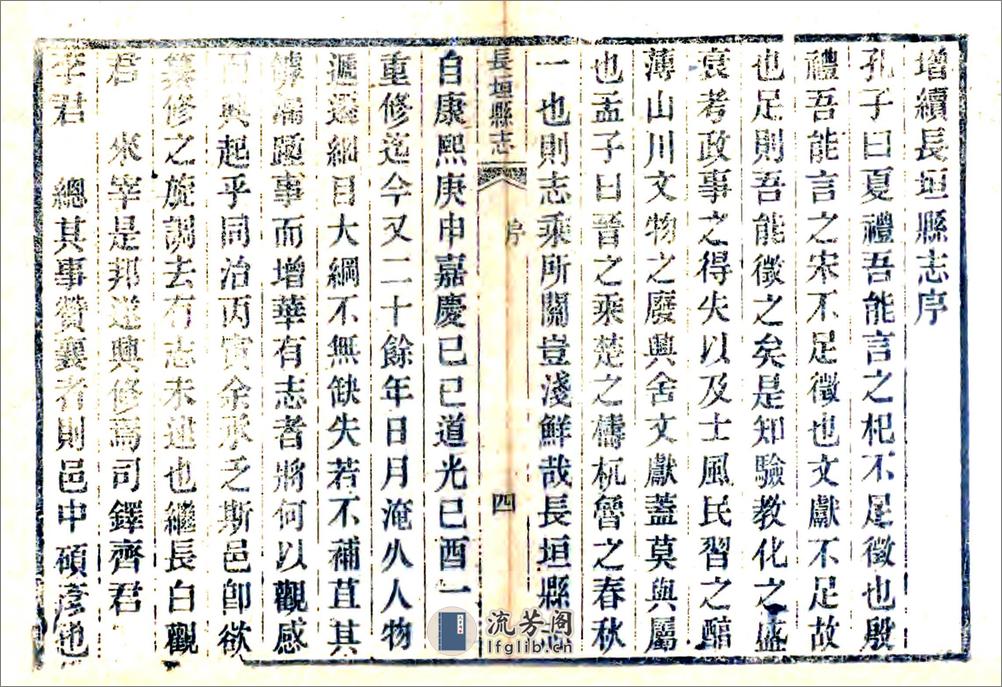 增續長垣縣志序
孔子曰夏禮吾能言之杞不足徵也殷
禮吾能言之宋不足徵也文獻不足故
也足則吾能徵之矣是知驗教化之盛
衰考政事之得失以及士風民習之醇
薄山川文物之廢興舍文獻蓋莫與屬
也孟子曰晉之乘楚之檮杌魯之春秋
一也則志乘所關豈淺鮮哉長垣縣志
長垣縣志 序 四
自康熙庚申嘉慶己巳道光己酉一
重修迄今又二十餘年日月淹久人物
遞遷細目大綱不無缺失若不補苴其
罅漏踵事而增華有志者將何以觀感
而興起乎同治丙寅余承乏斯邑卽欲
纂修之旋調去有志未逮也繼長白觀
君 來宰是邦遂興修焉司鐸齊君
李君 總其事贊襄者則邑中碩彥也
流芳閣
lfglib.cn